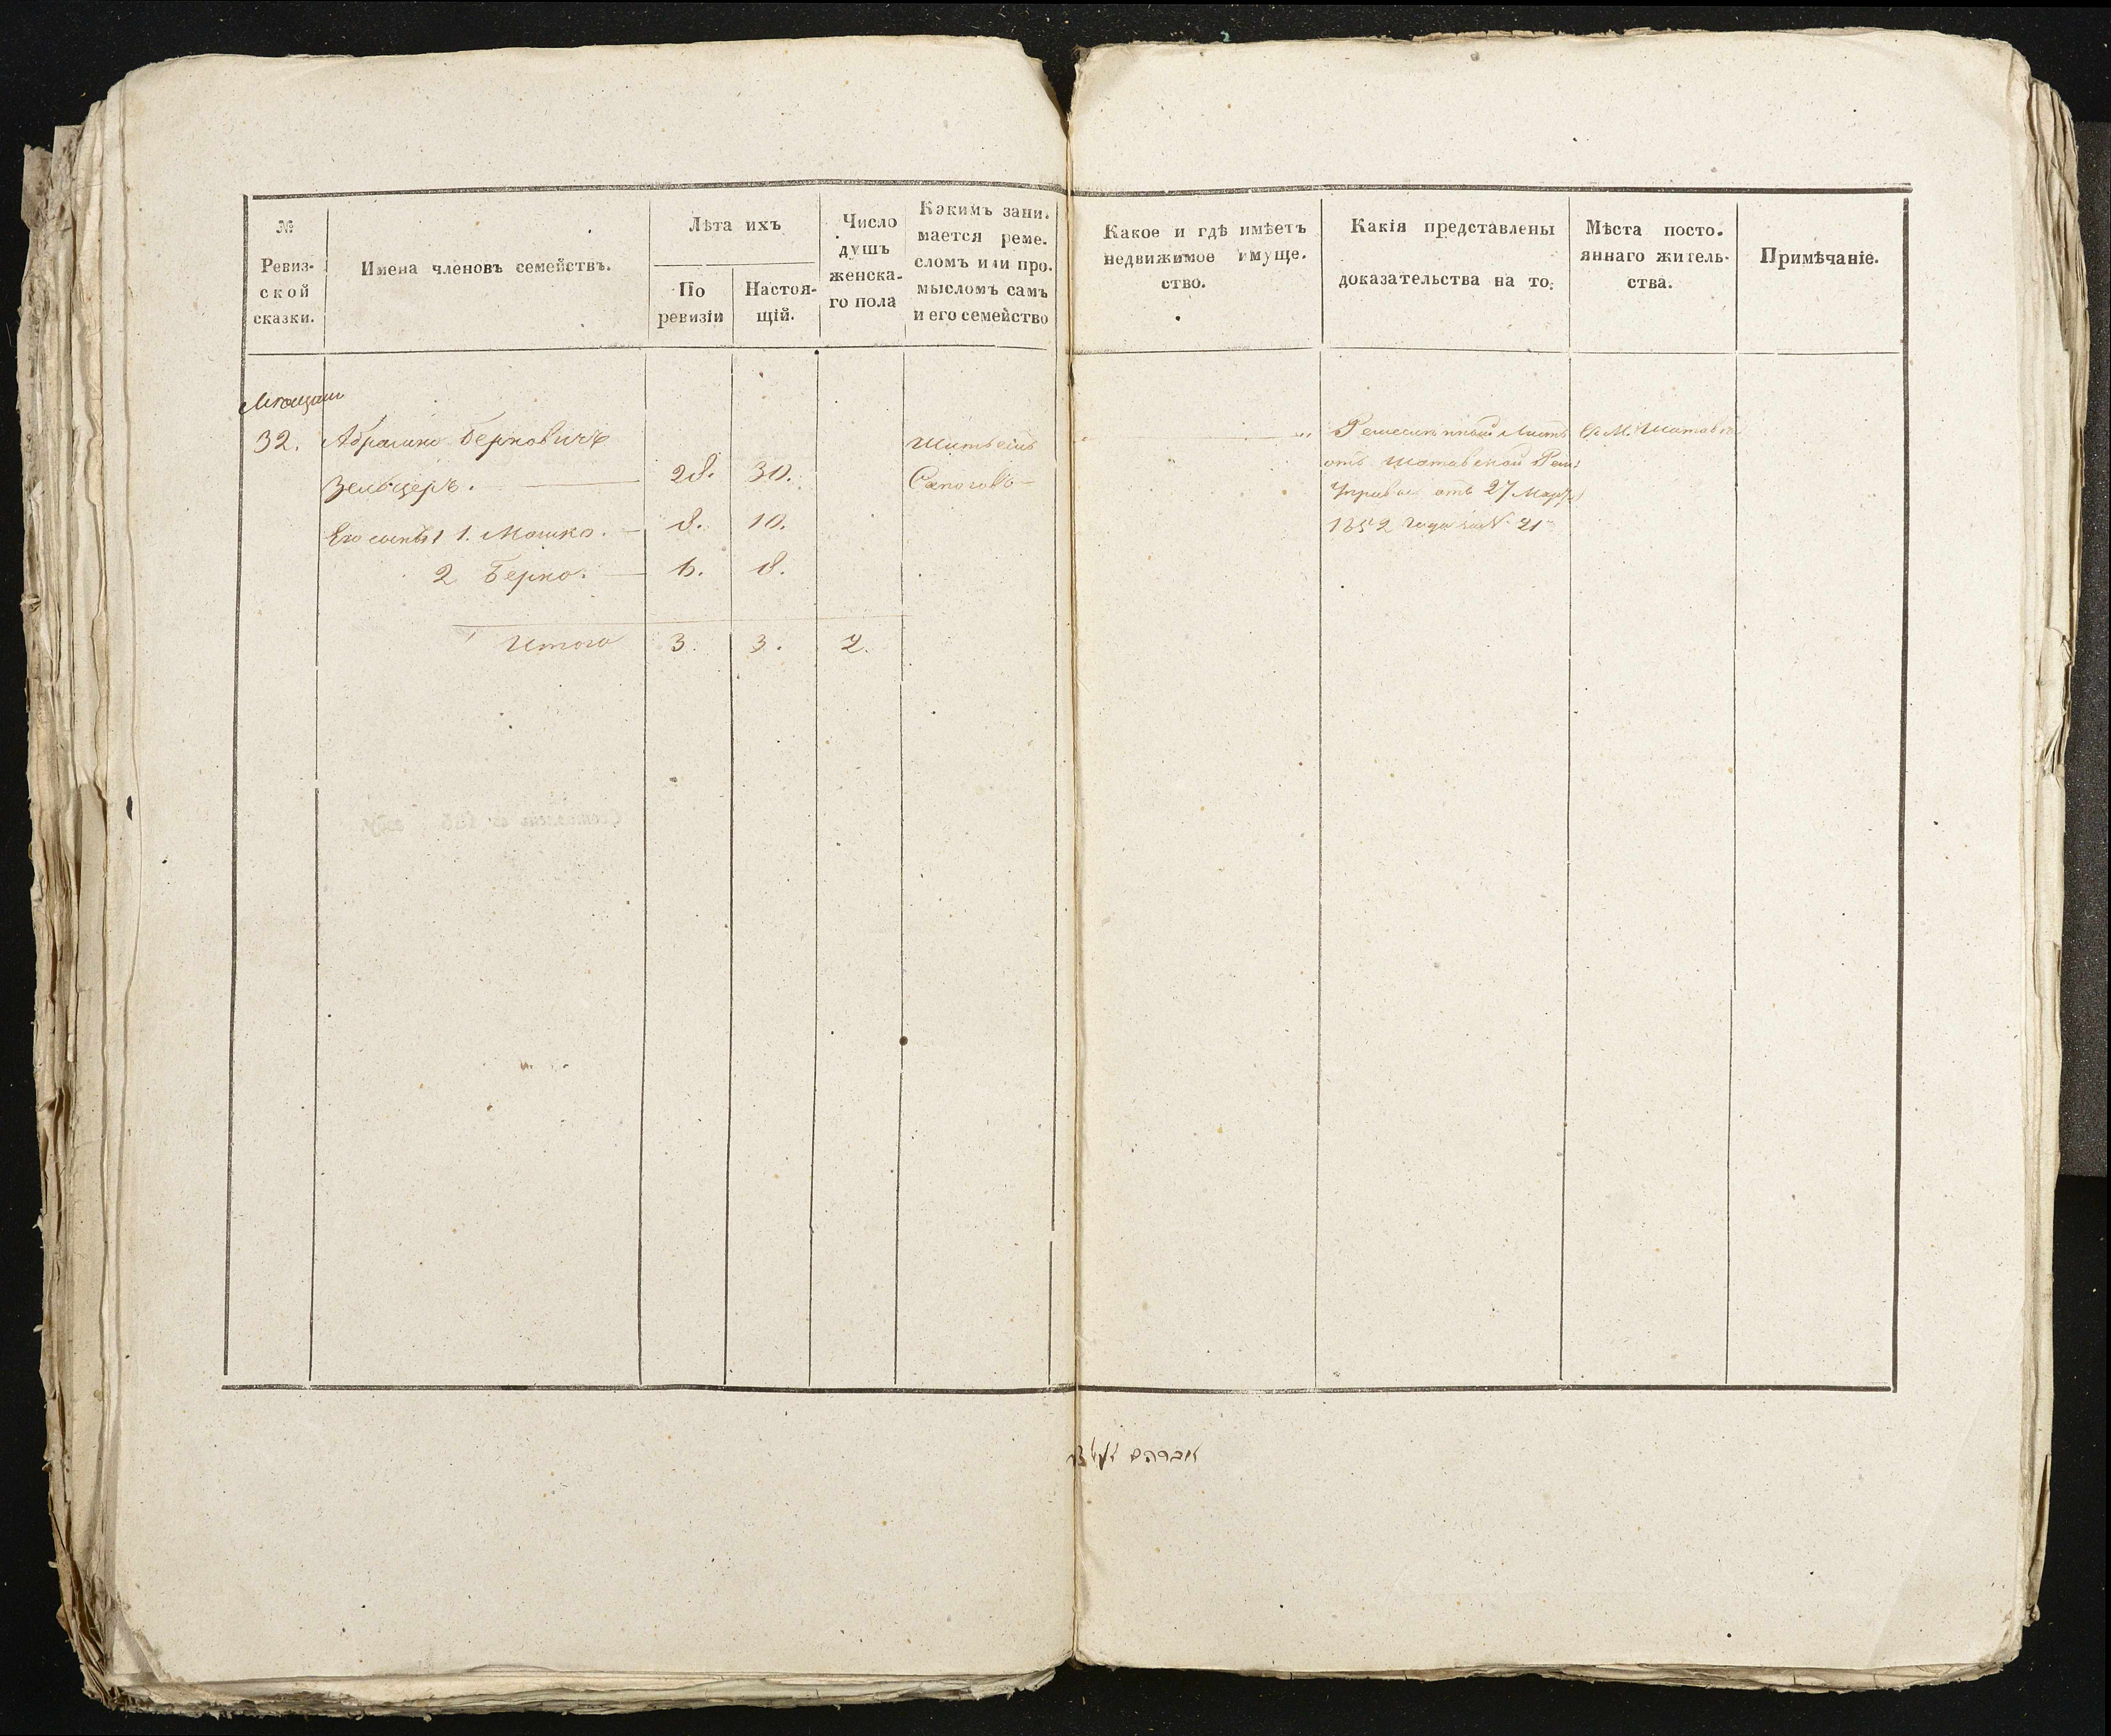 №
Ревиз-
ской
сказки.
Имена членовъ семействъ.
Лѣта ихъ
По
ревизіи
Настоя-
щій.
Число
душъ
женска-
го пола
Какимъ зани-
мается реме-
сломъ или про-
мысломъ самъ
и его семейство
Какое и гдѣ имѣетъ
недвижимое имуще-
ство.
Какія представлены
доказательства на то:
Мѣста посто-
яннаго житель-
ства.
Примѣчаніе.
Мещани
32. Абрамко Берковичъ
Зельцеръ. 28. 30.
Его сыновья 1. Мошко. 8. 10.
2 Берко. 6. 8.
Итого 3. 3. 2.
Шитьемъ
Сапоговъ
Ремесленный Листъ
отъ Шатавской Рем:
Управы отъ 27 Марта
1852 года за № 21
В М. Шатавка
אברהם